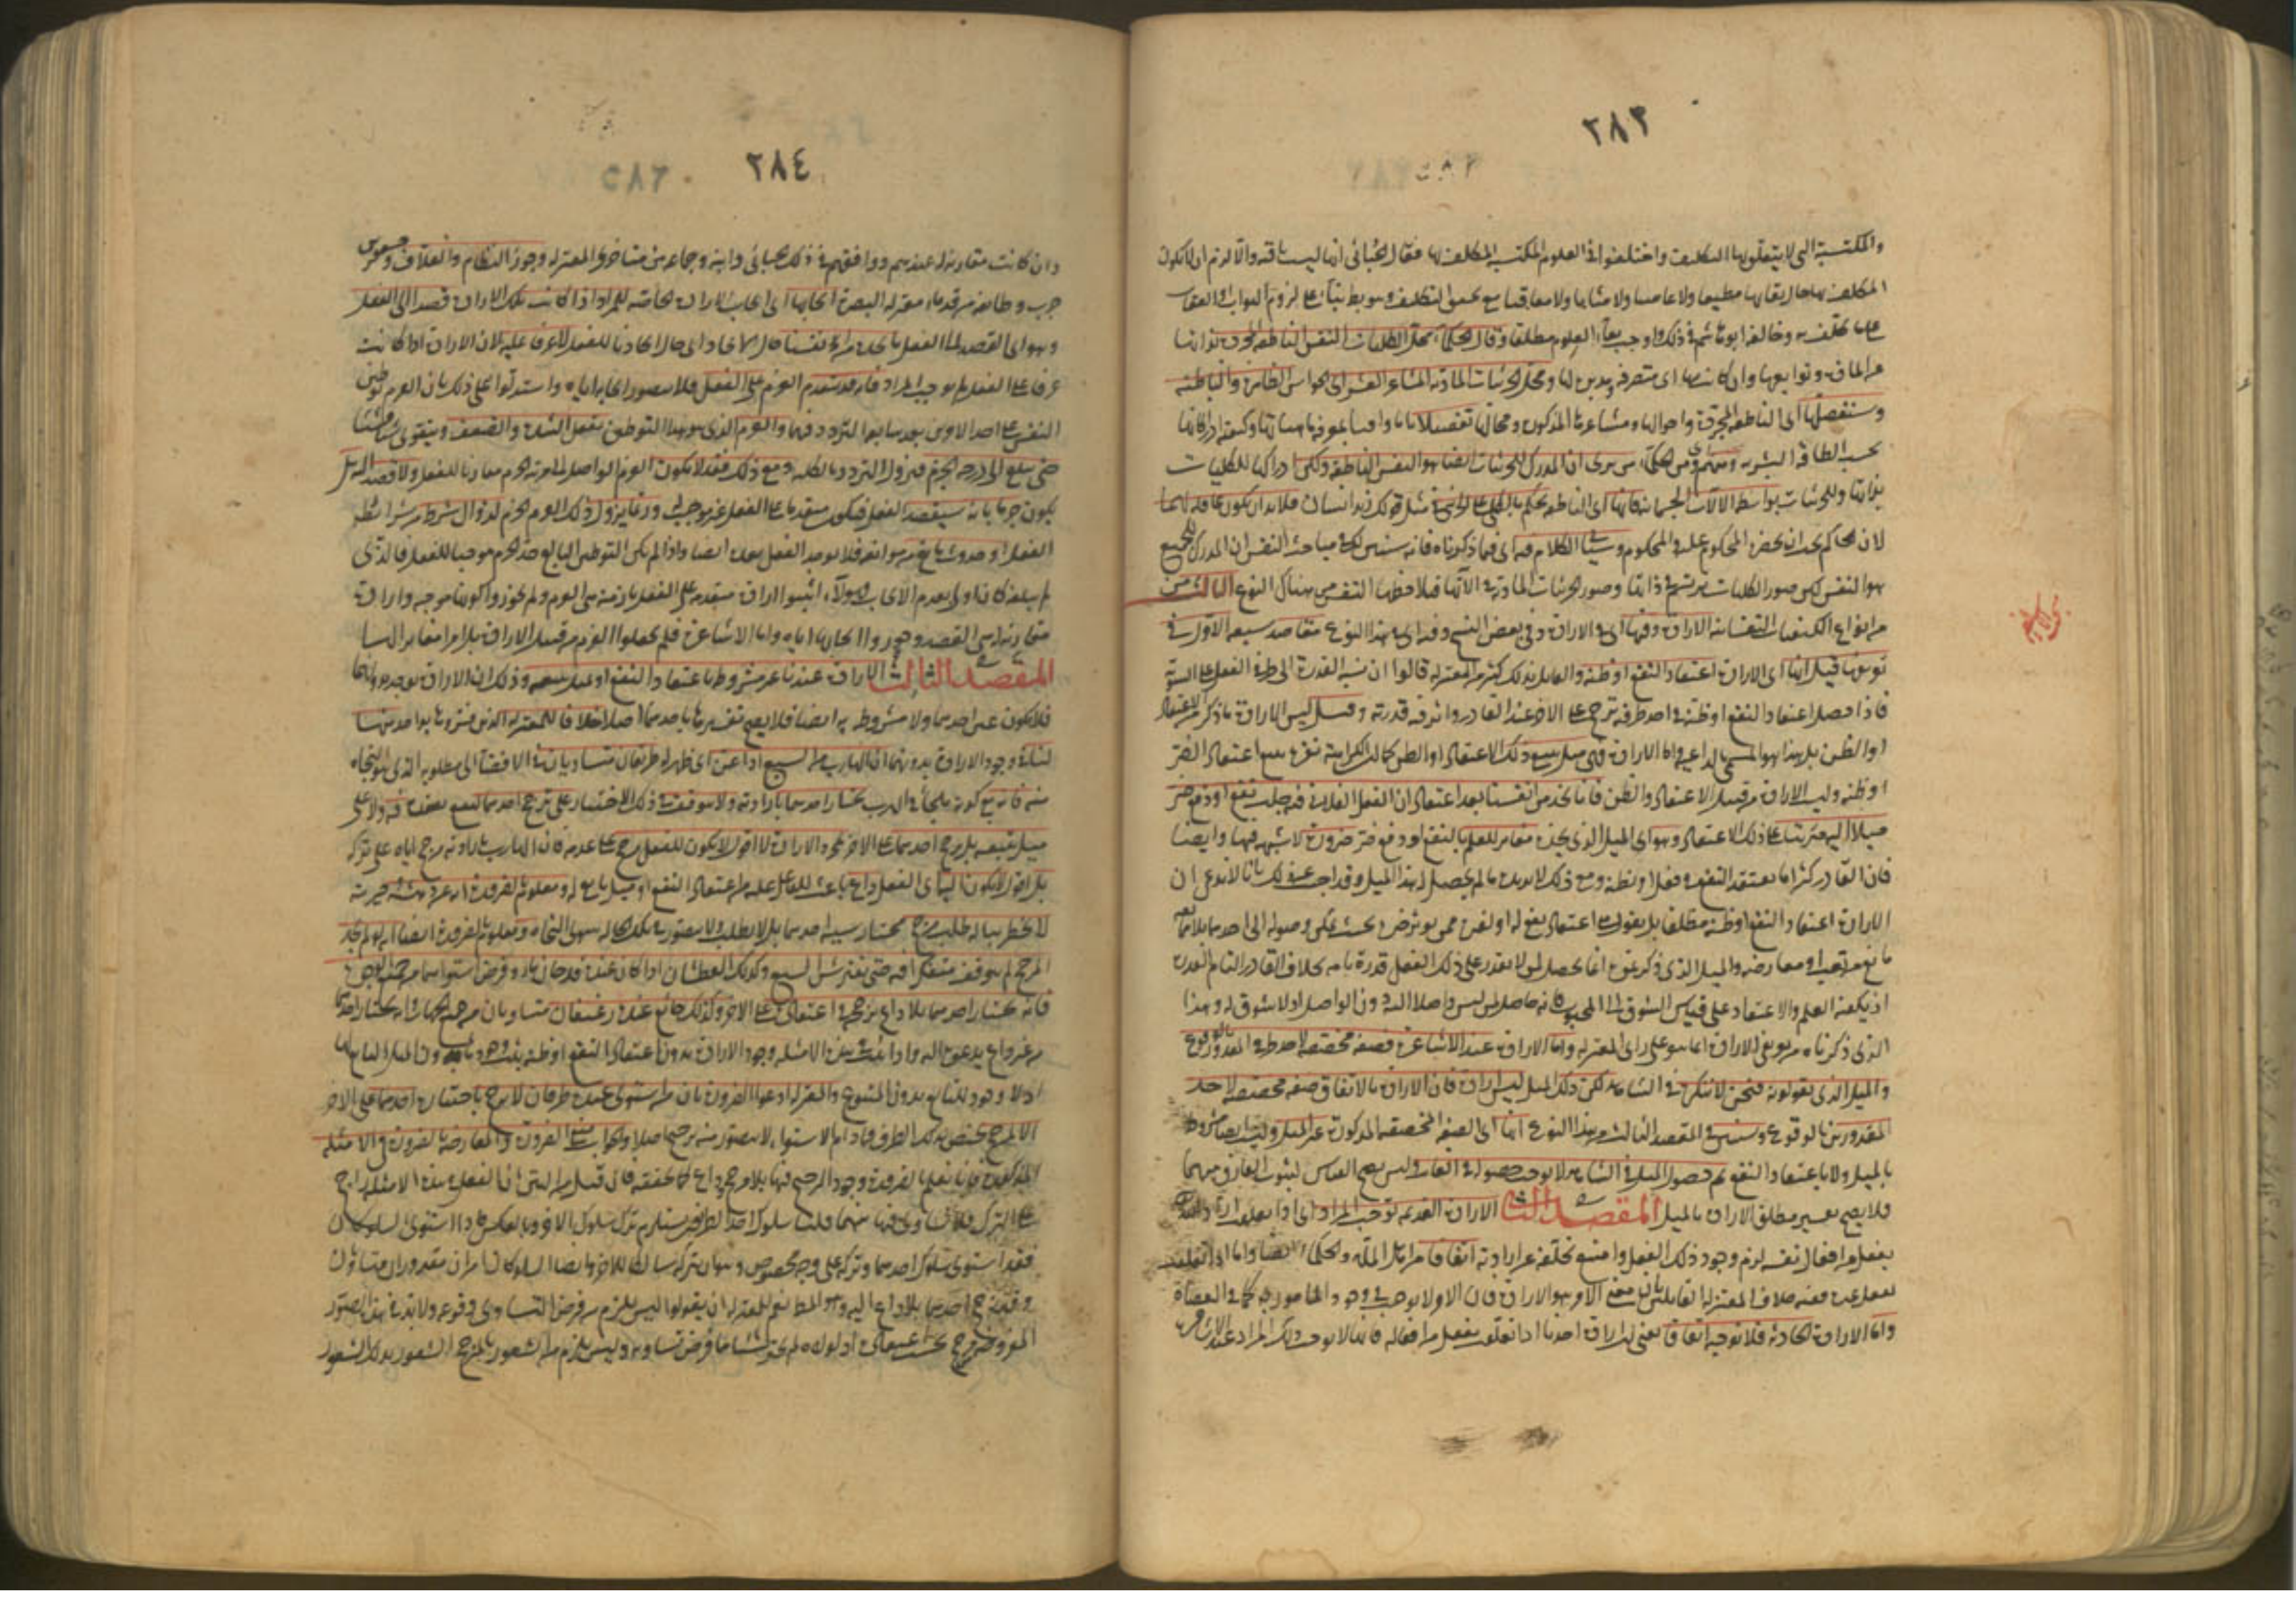 ٢٨٣
والمكتسبة التي لا يتعلق بها التكليف واختلفوا في العلوم المكتسبة المكلف بها فقال الجبائي انها ليست باقية والا لزم ان لا يكون
المكلف بها حال بقائها مطيعا ولا عاصيا ولا مثابا ولا معاقبا مع تحقق التكليف وهو بط بناء على لزوم الثواب او العقاب
على ما كلف به وخالفه ابو هاشم في ذلك واوجب بقاء العلوم مطلقا وقال الحكماء محل الكليات النفس الناطقة المجردة بذاتها
عن المادة وتوابعها وان كانت متصرفة ومحل الجزئيات المادية المشاعر العشر اي الحواس الظاهرة والباطنة
وسنفصلها اي الناطقة المجردة واحوالها ومشاعرها المذكورة ومحالها تفصيلا
بحسب الطاقة البشرية ومنهم اي من الحكماء من يرى ان المدرك للجزئيات ايضا هو النفس الناطقة ولكن ادراكها للكليات
بذاتها وللجزئيات بواسطة الآلات الجسمانية فانها اي الناطقة تحكم بالكلي على الجزئي مثل قولك زيد انسان فلا بد ان يكون عاقلة لهما
لان الحاكم يجب ان يحضره المحكوم عليه والمحكوم به وسياتي الكلام فيه اي فيما ذكرناه فانه سنبين لك في مباحث النفس ان المدرك للجميع
هو النفس لكن صور الكليات ترتسم في ذاتها وصور الجزئيات المادية في آلاتها فيلاحظها النفس من هناك النوع الثالث من
من انواع الكيفيات النفسانية الارادة وفيها اي في الارادة وفي بعض النسخ وفيه اي في هذا النوع مقاصد سبعة الاول في
تعريفها قيل انها اي الارادة اعتقاد النفع او ظنه والقائل بذلك كثير من المعتزلة قالوا ان نسبة القدرة الى طرفي الفعل على السوية
فاذا حصل اعتقاد النفع او ظنه في احد طرفيه ترجح على الآخر عند القادر واثر فيه قدرته وقيل ليس الارادة ما ذكر من الاعتقاد
او الظن بل هذا هو المسمى بالداعية واما الارادة فهي ميل يتبع ذلك الاعتقاد او الظن كما ان الكراهة نفرة تتبع اعتقاد الضر
او ظنه وليست الارادة من قبيل الاعتقاد والظن فانا نجد من انفسنا بعد اعتقاد ان الفعل الفلاني فيه جلب نفع او دفع ضر
ميلا اليه مترتبا على ذلك الاعتقاد وهو اي الميل الذي نجده مغاير للعلم بالنفع او دفع ضر ضرورة لا شبهة فيها وايضا
فان القادر كثيرا ما يعتقد النفع في فعل او يظنه ومع ذلك لا يريده ما لم يحصل له هذا الميل وقد اجيب عن ذلك بانا لا ندعي ان
الارادة اعتقاد النفع او ظنه مطلقا بل نقول هي اعتقاد نفع له او لغيره ممن يؤثر خيره بحيث يمكن وصوله الى احدهما بلا ممانعة
مانع من تعب او معارضة والميل الذي ذكرتموه انما يحصل لمن لا يقدر على ذلك الفعل قدرة تامة بخلاف القادر التام القدرة
اذ يكفيه العلم والاعتقاد على قياس الشوق الى المحبوب فانه حاصل لمن ليس واصلا اليه دون الواصل اذ لا شوق له وهذا
الذي ذكرناه من تعريف الارادة انما هو على راي المعتزلة واما الارادة عند الاشاعرة فصفة مخصصة لاحد طرفي المقدور بالوقوع
والميل الذي يقولونه فنحن لا ننكره في الشاهد لكن ذلك الميل ليس ارادة فان الارادة بالاتفاق صفة مخصصة لاحد
المقدورين بالوقوع وسنبين في المقصد الثالث من هذا النوع انها اي الصفة المخصصة المذكورة غير الميل وليست ايضا مشروطة
بالميل ولا باعتقاد النفع ثم حصول الميل في الشاهد لا يوجب حصوله في الغائب وليس يصح القياس لثبوت الفارق بينهما
فلا يصح تفسير مطلق الارادة بالميل المقصد الثاني الارادة القديمة توجب المراد اي اذا تعلقت ارادة الله
بفعل من افعال نفسه لزم وجود ذلك الفعل وامتنع تخلفه عن ارادته اتفاقا من اهل الملة والحكماء ايضا واما اذا تعلقت
بفعل غيره ففيه خلاف المعتزلة القائلين بان معنى الامر هو الارادة فان الامر لا يوجب وجود المأمور به كما في العصاة
واما الارادة الحادثة فلا توجبه اتفاقا يعني ان ارادة احدنا اذا تعلقت بفعل من افعاله فانها لا توجب ذلك المراد عند الاشاعرة
٢٨٤
وان كانت مقارنة له عندهم ووافقهم في ذلك الجبائي وابنه وجماعة من متاخري المعتزلة وجوز النظام والعلاف وجعفر بن
حرب وطائفة من قدماء معتزلة البصرة ايجابها اي ايجاب الارادة الحادثة للمراد اذا كانت تلك الارادة قصدا الى الفعل
وهو اي القصد الى الفعل ما نجده من انفسنا حال الايجاد اي حال ايجادنا للفعل لا عزما عليه لان الارادة اذا كانت
عزما على الفعل لم توجب المراد فانه قد يتقدم العزم على الفعل فلا يتصور ايجابه اياه واستدلوا على ذلك بان العزم توطين
النفس على احد الامرين بعد سابقة التردد فيهما والعزم الذي هو هذا التوطين يقبل الشدة والضعف ويتقوى شيئا فشيئا
حتى يبلغ الى درجة الجزم فيزول التردد بالكلية ومع ذلك فقد لا يكون العزم الواصل الى مرتبة الجزم مقارنا للفعل ولا قصد اليه بل
يكون جزما بانه سيقصد الفعل فيكون متقدما على الفعل غير موجب له وربما يزول ذلك العزم الجزم لزوال شرط من شرائط
الفعل او حدوث مانع من موانعه فلا يوجد الفعل بعده ايضا واذا لم يكن التوطين البالغ حد الجزم موجبا للفعل فالذي
لم يبلغه كان اولى بعدم الايجاب فهؤلاء اثبتوا ارادة متقدمة على الفعل بازمنة هي العزم ولم يجوزوا كونها موجبة وارادة
مقارنة له هي القصد وجوزوا ايجابها اياه واما الاشاعرة فلم يجعلوا العزم من قبيل الارادة بل امرا مغايرا لها
المقصد الثالث الارادة عندنا غير مشروطة باعتقاد النفع او بميل يتبعه وذلك ان الارادة توجد بدونهما
فلا تكون عين احدهما ولا مشروطة به ايضا فلا يصح تفسيرها باحدهما اصلا خلافا للمعتزلة الذين فسروها بواحد منهما
لنا في وجود الارادة بدونهما ان الهارب من السبع اذا عن اي ظهر له طريقان متساويان في الافضاء الى مطلوبه الذي هو النجاة
منه فانه مع كونه ملجأ في الهرب يختار احدهما بارادته ولا يتوقف في ذلك الاختيار على ترجح احدهما لنفع يعتقده فيه ولا على
ميل يتبعه بل يرجح احدهما على الآخر بمجرد الارادة لا اقول لا يكون للفعل مرجح على عدمه فان الهارب بارادته مرجح اياه على تركه
بل اقول لا يكون اليه اي الفعل داع باعث للفاعل عليه من اعتقاد النفع او ميل تابع له ومعلوم بالضرورة انه عن دهشته وحيرته
لا يخطر بباله طلب مرجح يختار بسببه احدهما بل لا يطلب ولا يتصور في تلك الحالة سوى النجاة ومعلوم بالضرورة ايضا انه لو لم يجد
المرجح لم يتوقف متفكرا فيه حتى يفترسه السبع وكذلك العطشان اذا كان عنده قدحان ماء وفرض استواؤهما من جميع الوجوه
فانه يختار احدهما بلا داع يرجحه في اعتقاده على الآخر وكذلك جائع عنده رغيفان متساويان من جميع الجهات فانه يختار احدهما
من غير داع يدعوه اليه واذا ثبت في هذه الامثلة وجود الارادة بدون اعتقاد النفع او ظنه ثبت وجودها بدون الميل التابع لهما
اذ لا وجود للتابع بدون المتبوع والمعتزلة ادعوا الضرورة بان من استوى عنده طرفان لا يرجح باختياره احدهما على الآخر
الا لمرجح يختص بذلك الطرف فما دام الاستواء لا يتصور منه ترجيح اصلا والجواب منع الضرورة والمعارضة بالضرورة في الامثلة
المذكورة فانا نعلم بالضرورة وجود الترجيح فيها بلا مرجح داع كما تحققه فان قيل من البين ان الفعل في هذه الامثلة راجح
على الترك فلا تساوي فيها بينهما قلنا سلوك احد الطريقين يستلزم ترك سلوك الآخر وبالعكس فاذا استوى السلوكان
فقد استوى سلوك احدهما وتركه على وجه مخصوص وهو ان يتركه سالكا للآخر وايضا السلوكان امران مقدوران متساويان
وقد رجح احدهما بلا داع اليه وهو المط نعم للمعتزلة ان يقولوا ليس يلزم من فرض التساوي وقوعه ولا بد في هذه الصور
المفروضة من مرجح بحسب اعتقاده اذ لولاه لم يختر شيئا مما فرض تساويه وليس يلزم من الشعور بالمرجح الشعور بذلك الشعور